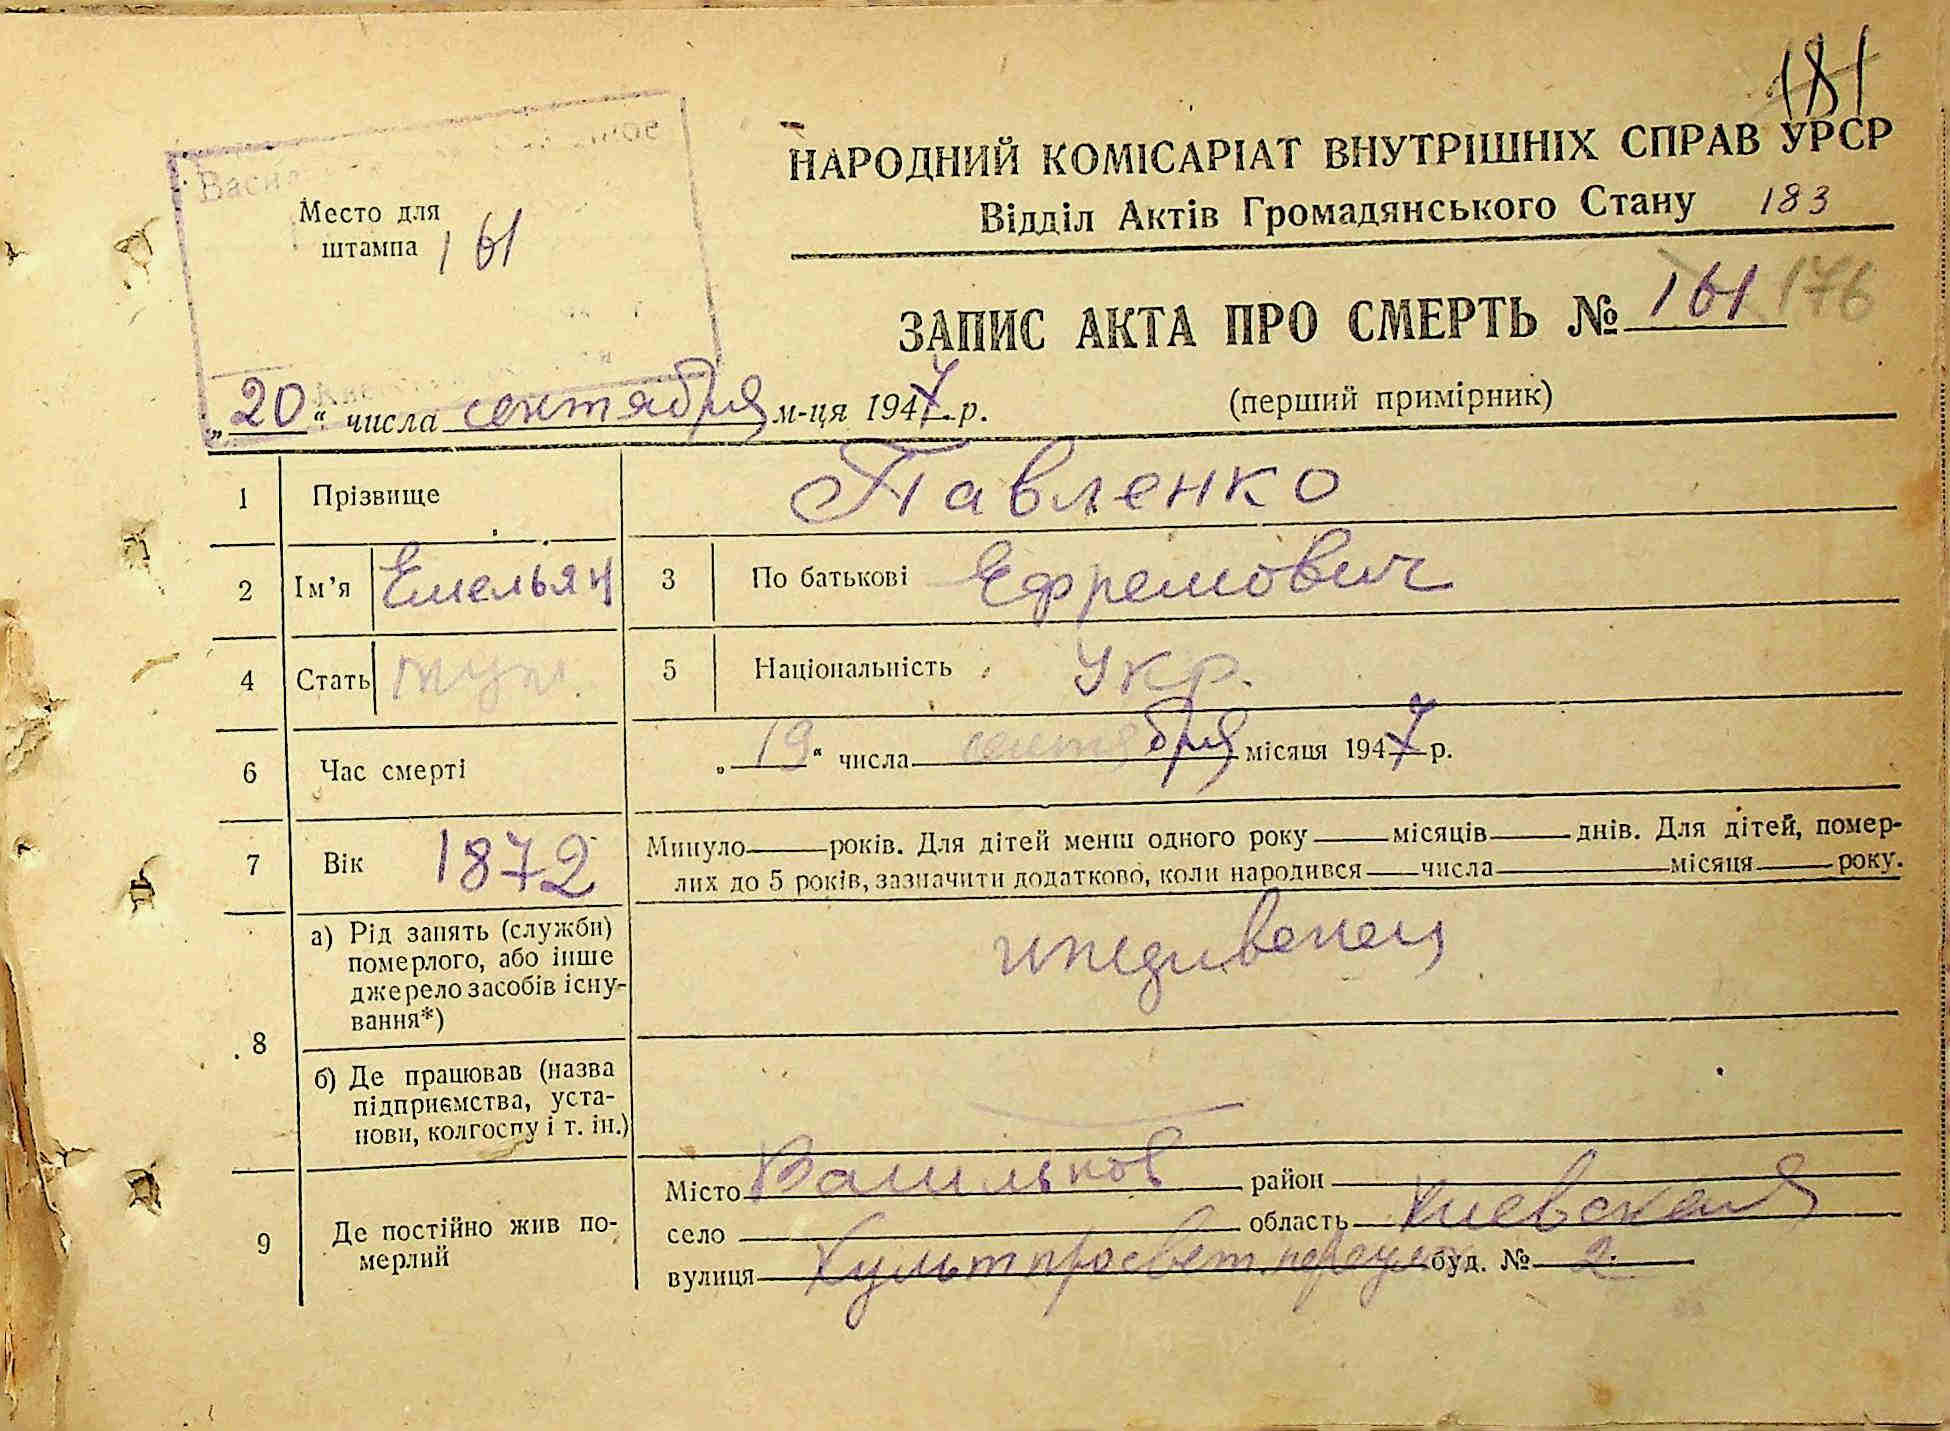 181
НАРОДНИЙ КОМІСАРІАТ ВНУТРІШНІХ СПРАВ УРСР
Відділ Актів Громадянського Стану 183
Васил
Место для
штампа 161
ЗАПИС АКТА ПРО СМЕРТЬ № 161 176
„20“ числа сентября м-ця 1947 р.
(перший примірник)
1 Прізвище Павленко
2 Ім’я Емельян 3 По батькові Ефремович
4 Стать муж. 5 Національність Укр.
6 Час смерті „19“ числа сентября місяця 1947 р.
7 Вік 1872 Минуло років. Для дітей менш одного року місяців днів. Для дітей, помер-
лих до 5 років, зазначити додатково, коли народився числа місяця року.
8 а) Рід занять (служби)
померлого, або інше
джерело засобів існу-
вання*)
иждивенец
б) Де працював (назва
підприємства, уста-
нови, колгоспу і т. ін.)
9 Де постійно жив по-
мерлий
Місто Васильков район
село область Киевская
вулиця Культпросвет. переул. буд. № 2